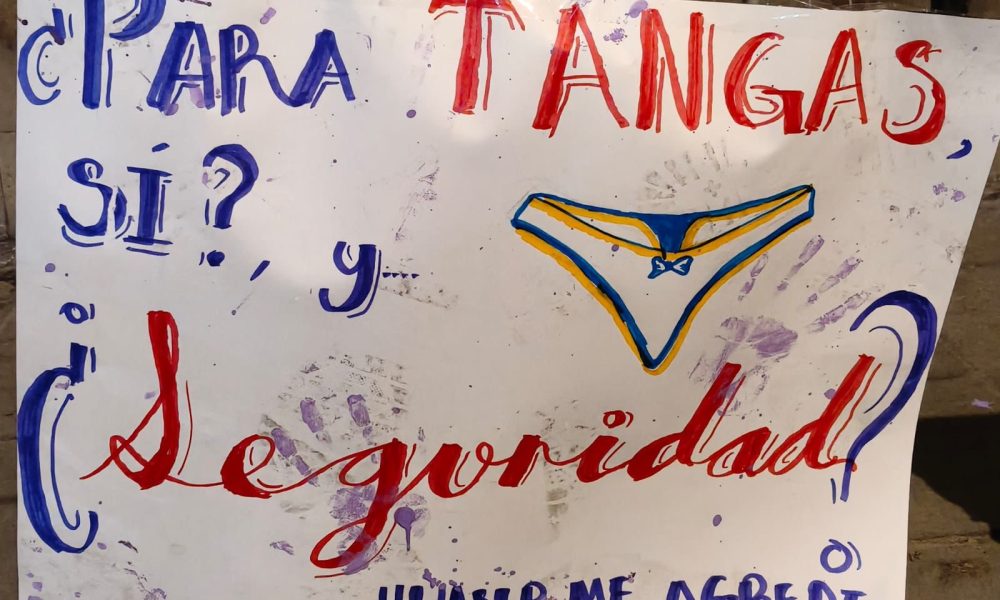 ¿PARA TANGAS,
SÍ?, y....
¿Seguridad?
ME